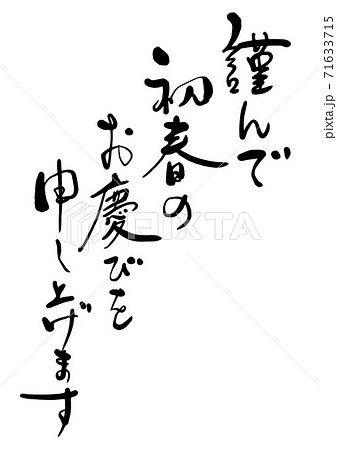 謹んで
初春の
お慶びを
申し上げます
PIXTA
pixta.jp - 71633715